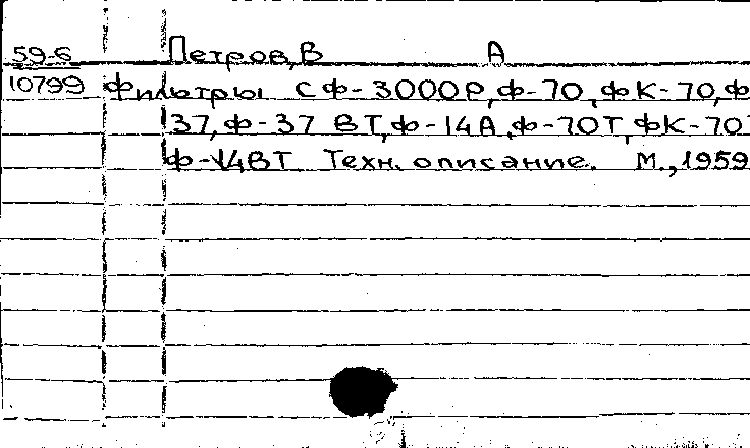 59-6 Петров, В А
10799 Фильтры СФ-3000Р, Ф-70, ФК-70, Ф
37, Ф-37 ВТ, Ф-14А, Ф-70Т, ФК-70
Ф-14ВТ Техн. описание. М., 1959